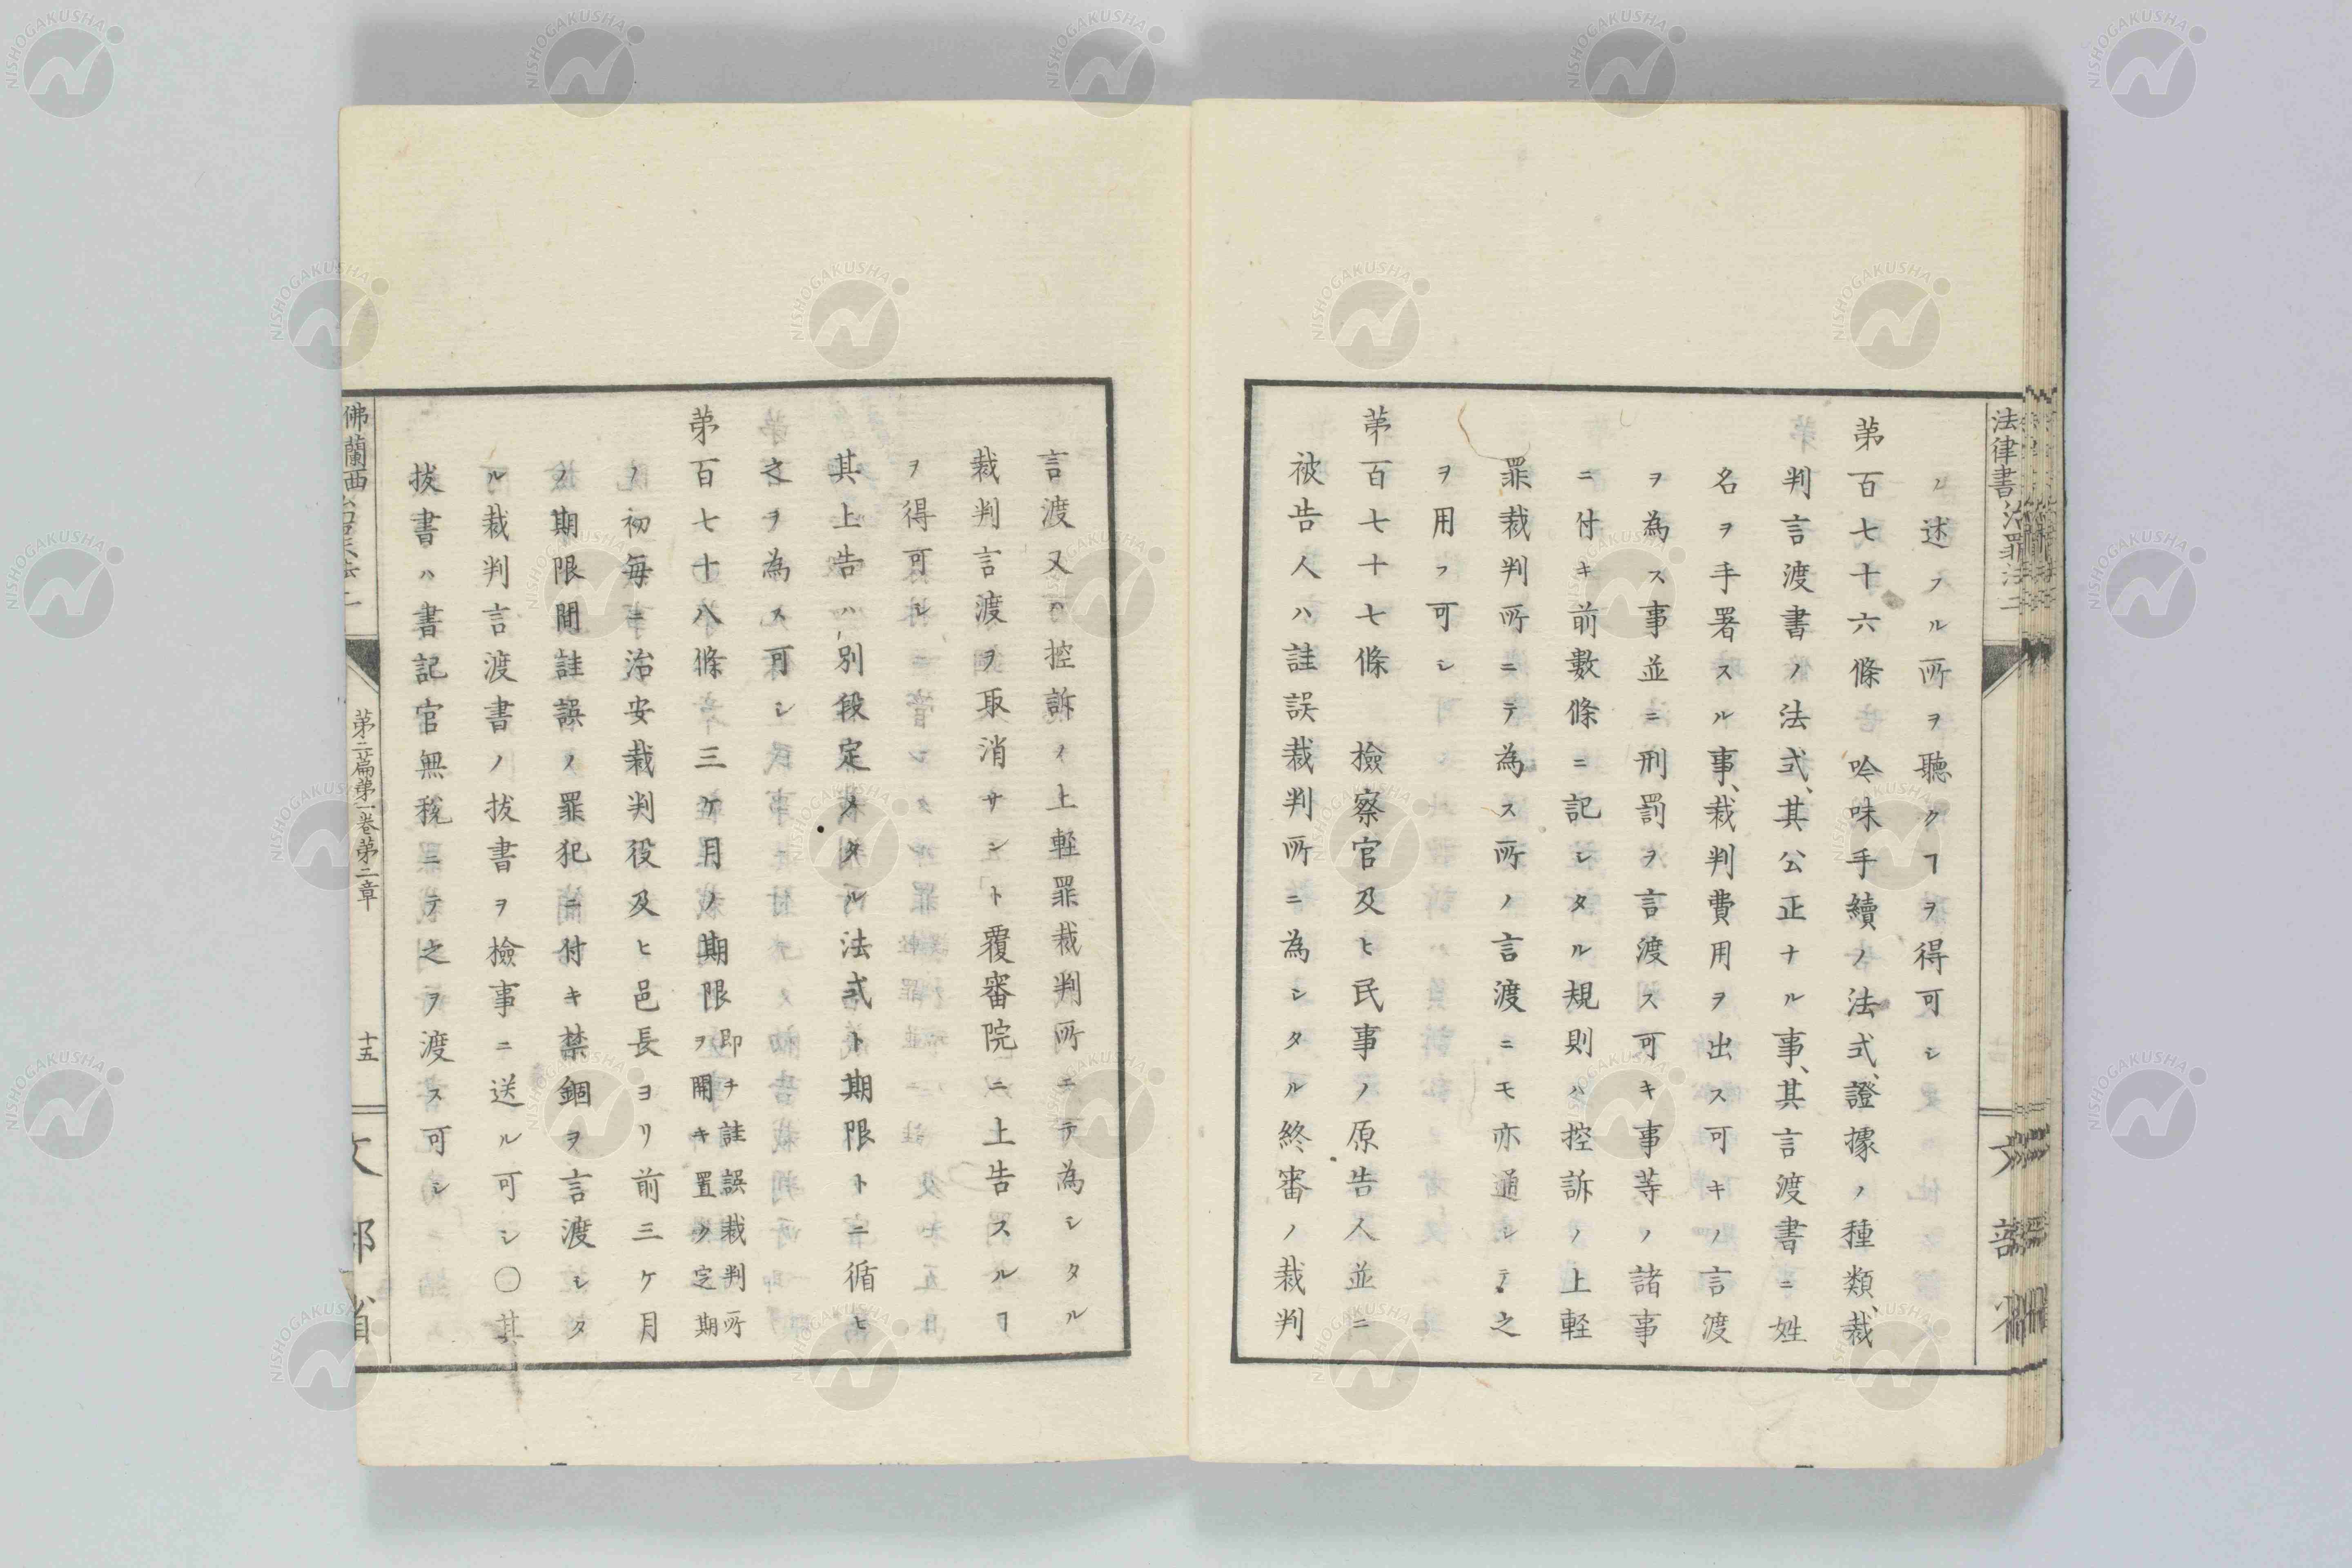 法律書 治罪法二
文部省
ヒ述フル所ヲ聴クヿヲ得可シ
苐百七十六條　吟味手續ノ法式、證據ノ種類、裁
判言渡書ノ法式、其公正ナル事、其言渡書ニ姓
名ヲ手署スル事、裁判費用ヲ出ス可キノ言渡
ヲ為ス事並ニ刑罰ヲ言渡ス可キ事等ノ諸事
ニ付キ前數條ニ記シタル規則ハ控訴ノ上軽
罪裁判所ニテ為ス所ノ言渡ニモ亦通シテ之
ヲ用フ可シ
苐百七十七條　檢察官及ヒ民事ノ原告人並ニ
被告人ハ詿誤裁判所ニ為シタル終審ノ裁判
言渡又ハ控訴ノ上軽罪裁判所ニテ為シタル
裁判言渡ヲ取消サンヿ覆審院ニ上告スルヿ
ヲ得可シ
其上告ハ別段定メタル法式ト期限トニ循ヒ
之ヲ為ス可シ
苐百七十八條　三ケ月ノ期限即チ詿誤裁判所ヲ開キ置ク定期
ノ初毎ニ治安裁判役及ヒ邑長ヨリ前三ケ月
ノ期限間詿誤ノ罪犯ニ付キ禁錮ヲ言渡シタ
ル裁判言渡書ノ抜書ヲ檢事ニ送ル可シ〇其
抜書ハ書記官無税ニテ之ヲ渡ス可シ
佛蘭西
苐二篇苐一巻苐二章
十五
文部省